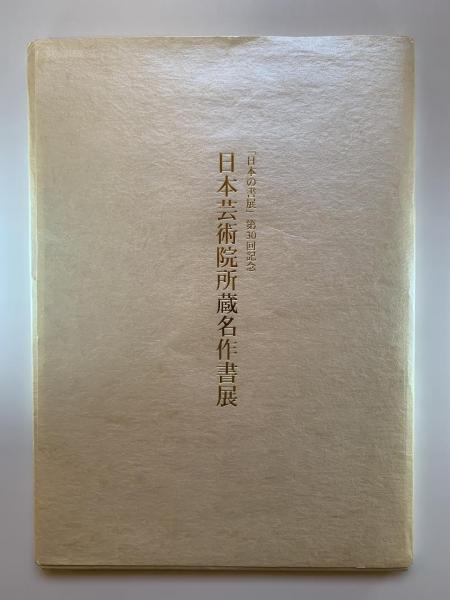 「日本の書展」第30回記念
日本芸術院所蔵名作書展